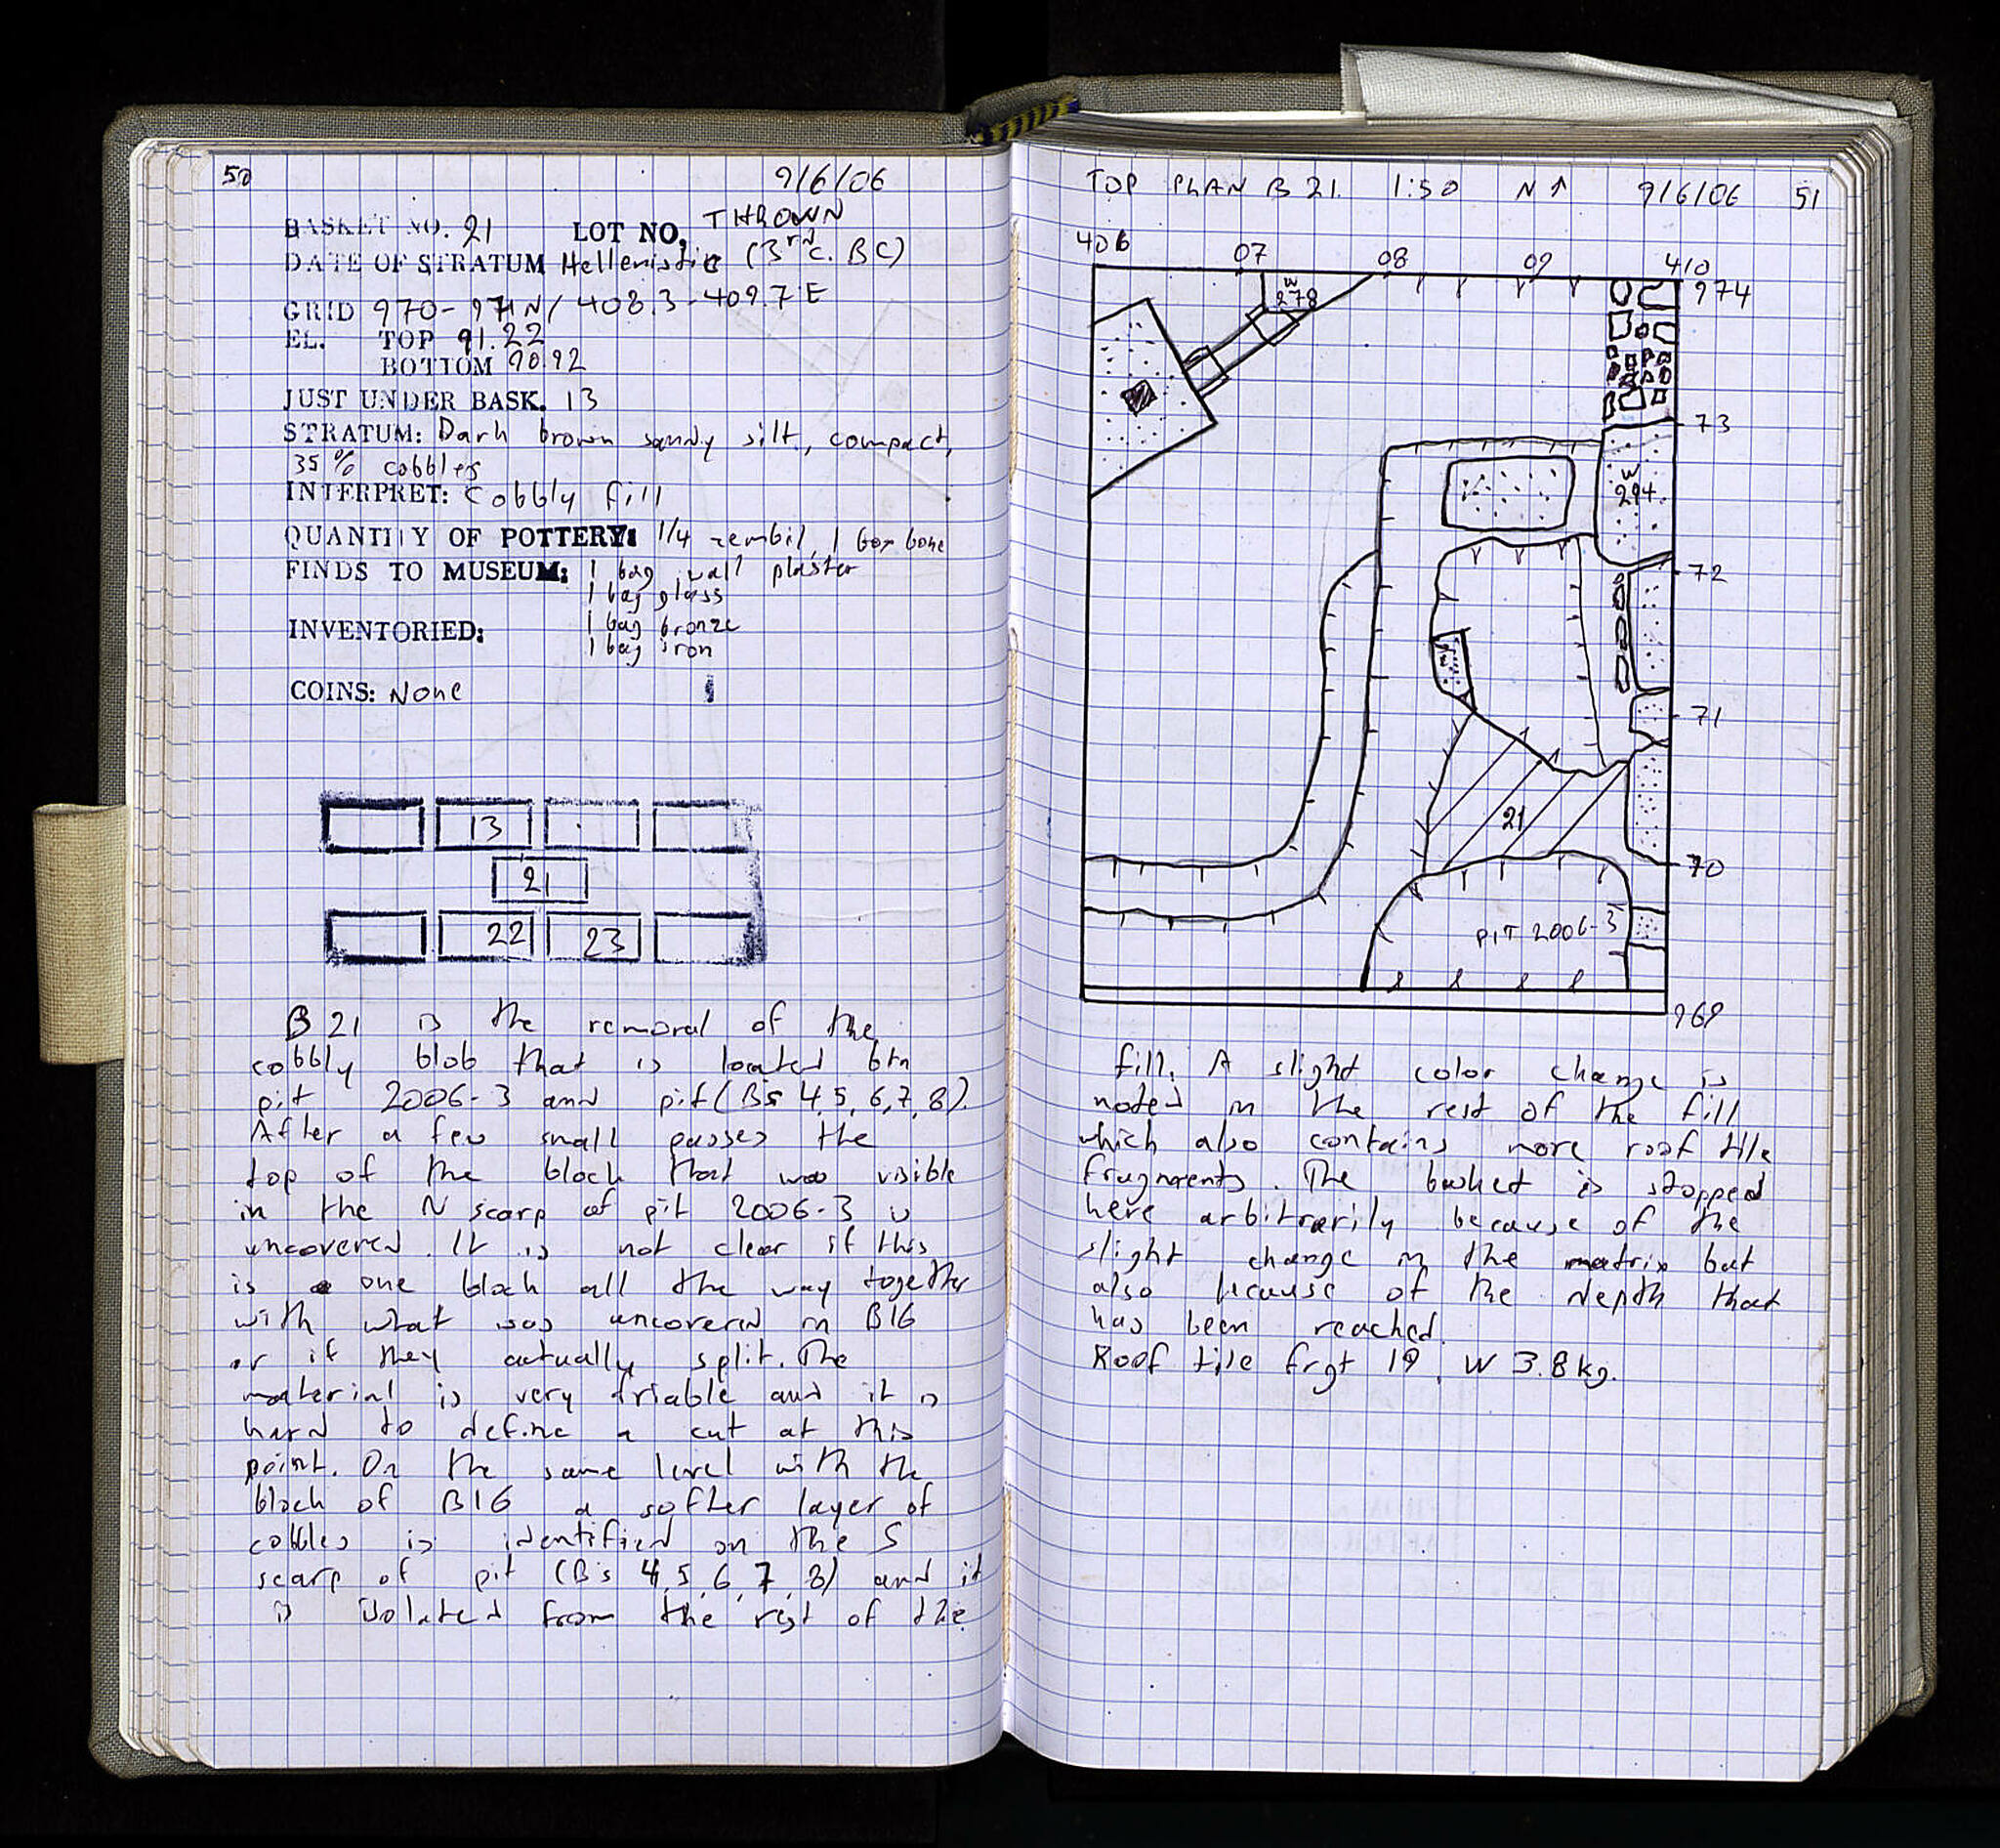 50 9/6/06
BASKET NO. 21 LOT NO. THROWN
DATE OF STRATUM Hellenistic (3rd c. BC)
GRID 970-971N/ 408.3-409.7E
EL. TOP 91.22
BOTTOM 90.92
JUST UNDER BASK. 13
STRATUM: Dark brown sandy silt, compact,
35% cobbles
INTERPRET: Cobbly fill
QUANTITY OF POTTERY: 1/4 zembil, 1 bag bone
FINDS TO MUSEUM: 1 bag wall plaster
1 bag glass
INVENTORIED: 1 bag bronze
1 bag iron
COINS: None
13
21
22 23
B 21 is the removal of the
cobbly blob that is located btn
pit 2006-3 and pit (B's 4,5,6,7,8).
After a few small passes the
top of the block that was visible
in the N scarp of pit 2006-3 is
uncovered. It is not clear if this
is one block all the way together
with what was uncovered in B16
or if they actually split. The
material is very friable and it is
hard to define a cut at this
point. On the same level with the
block of B16 a softer layer of
cobbles is identified on the S
scarp of pit (B's 4,5,6,7,8) and it
is isolated from the rest of the
TOP PLAN B 21. 1:50 N↑ 9/6/06 51
406 07 08 09 410
974
W
278
73
W
294
72
71
21
70
PIT 2006-3
969
fill. A slight color change is
noted in the rest of the fill
which also contains more roof tile
fragments. The basket is stopped
here arbitrarily because of the
slight change in the matrix but
also because of the depth that
has been reached.
Roof tile frgt 19, W 3.8kg.